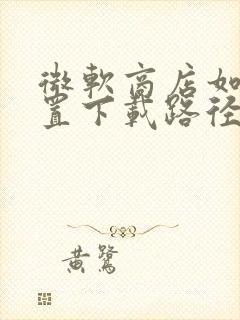 微軟商店如
置下載路徑
黃鷺